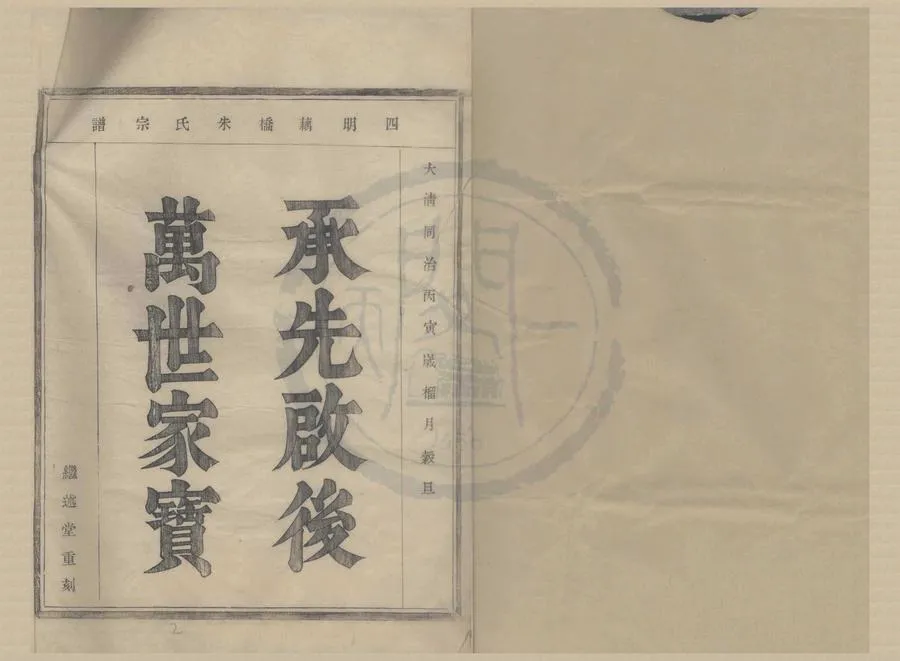 四明藕橋朱氏宗譜
大清同治丙寅歲榴月榖旦
承先啟後
萬世家寶
繼述堂重刻
2